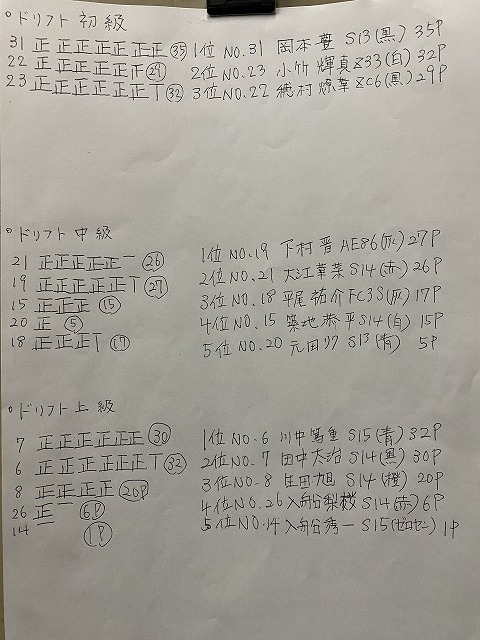 °ドリフト 初級
31 正正正正正正正 ㉟ 1位 NO.31 岡本 豊 S13(黒) 35P
22 正正正正正 ㉙ 2位 NO.23 小竹 輝真 Z33(白) 32P
23 正正正正正正丅 ㉜ 3位 NO.22 穂村 燎華 ZC6(黒) 29P
°ドリフト 中級
21 正正正正正一 ㉖ 1位 NO.19 下村 晋 AE86(灰) 27P
19 正正正正正丅 ㉗ 2位 NO.21 大江 華菜 S14(赤) 26P
15 正正正 ⑮ 3位 NO.18 平尾 祐介 FC3S(灰) 17P
20 正 ⑤ 4位 NO.15 築地 恭平 S14(白) 15P
18 正正正丅 ⑰ 5位 NO.20 元田 リク S13(青) 5P
°ドリフト 上級
7 正正正正正正 ㉚ 1位 NO.6 川中 篤重 S15(青) 32P
6 正正正正正正丅 ㉜ 2位 NO.7 田中 大治 S14(黒) 30P
8 正正正正 20P 3位 NO.8 庄田 旭 S14(橙) 20P
26 正一 6P 4位 NO.26 入船 梨桜 S14(赤) 6P
14 一 1P 5位 NO.14 入船 秀一 S15(ゼロセン) 1P